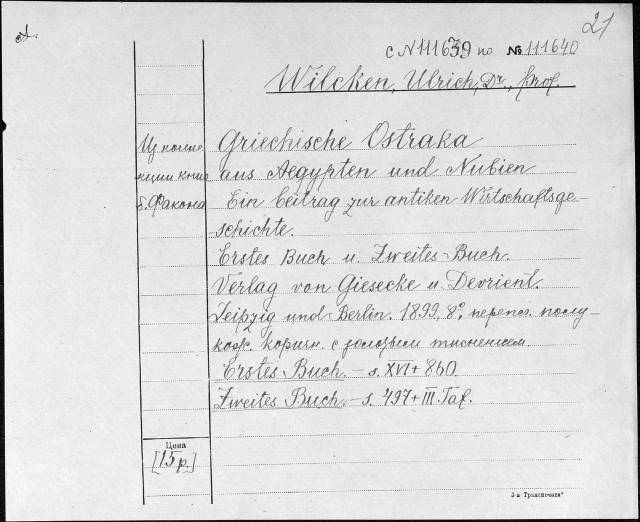 21
с N 111639 по № 111640
Wilcken, Ulrich, Dr., Prof.
Из коллекции книг б. Факона
Griechische Ostraka
aus Aegypten und Nubien
Ein Beitrag zur antiken Wirtschaftsge-
schichte.
Erstes Buch u. Zweites Buch.
Verlag von Giesecke u. Devrient.
Leipzig und Berlin. 1899, 8°, перепл. полу-
кож. коричн. с золотым тиснением.
Erstes Buch. – s. XVI + 860
Zweites Buch. – s. 497 + III Taf.
Цена
[15 р.]